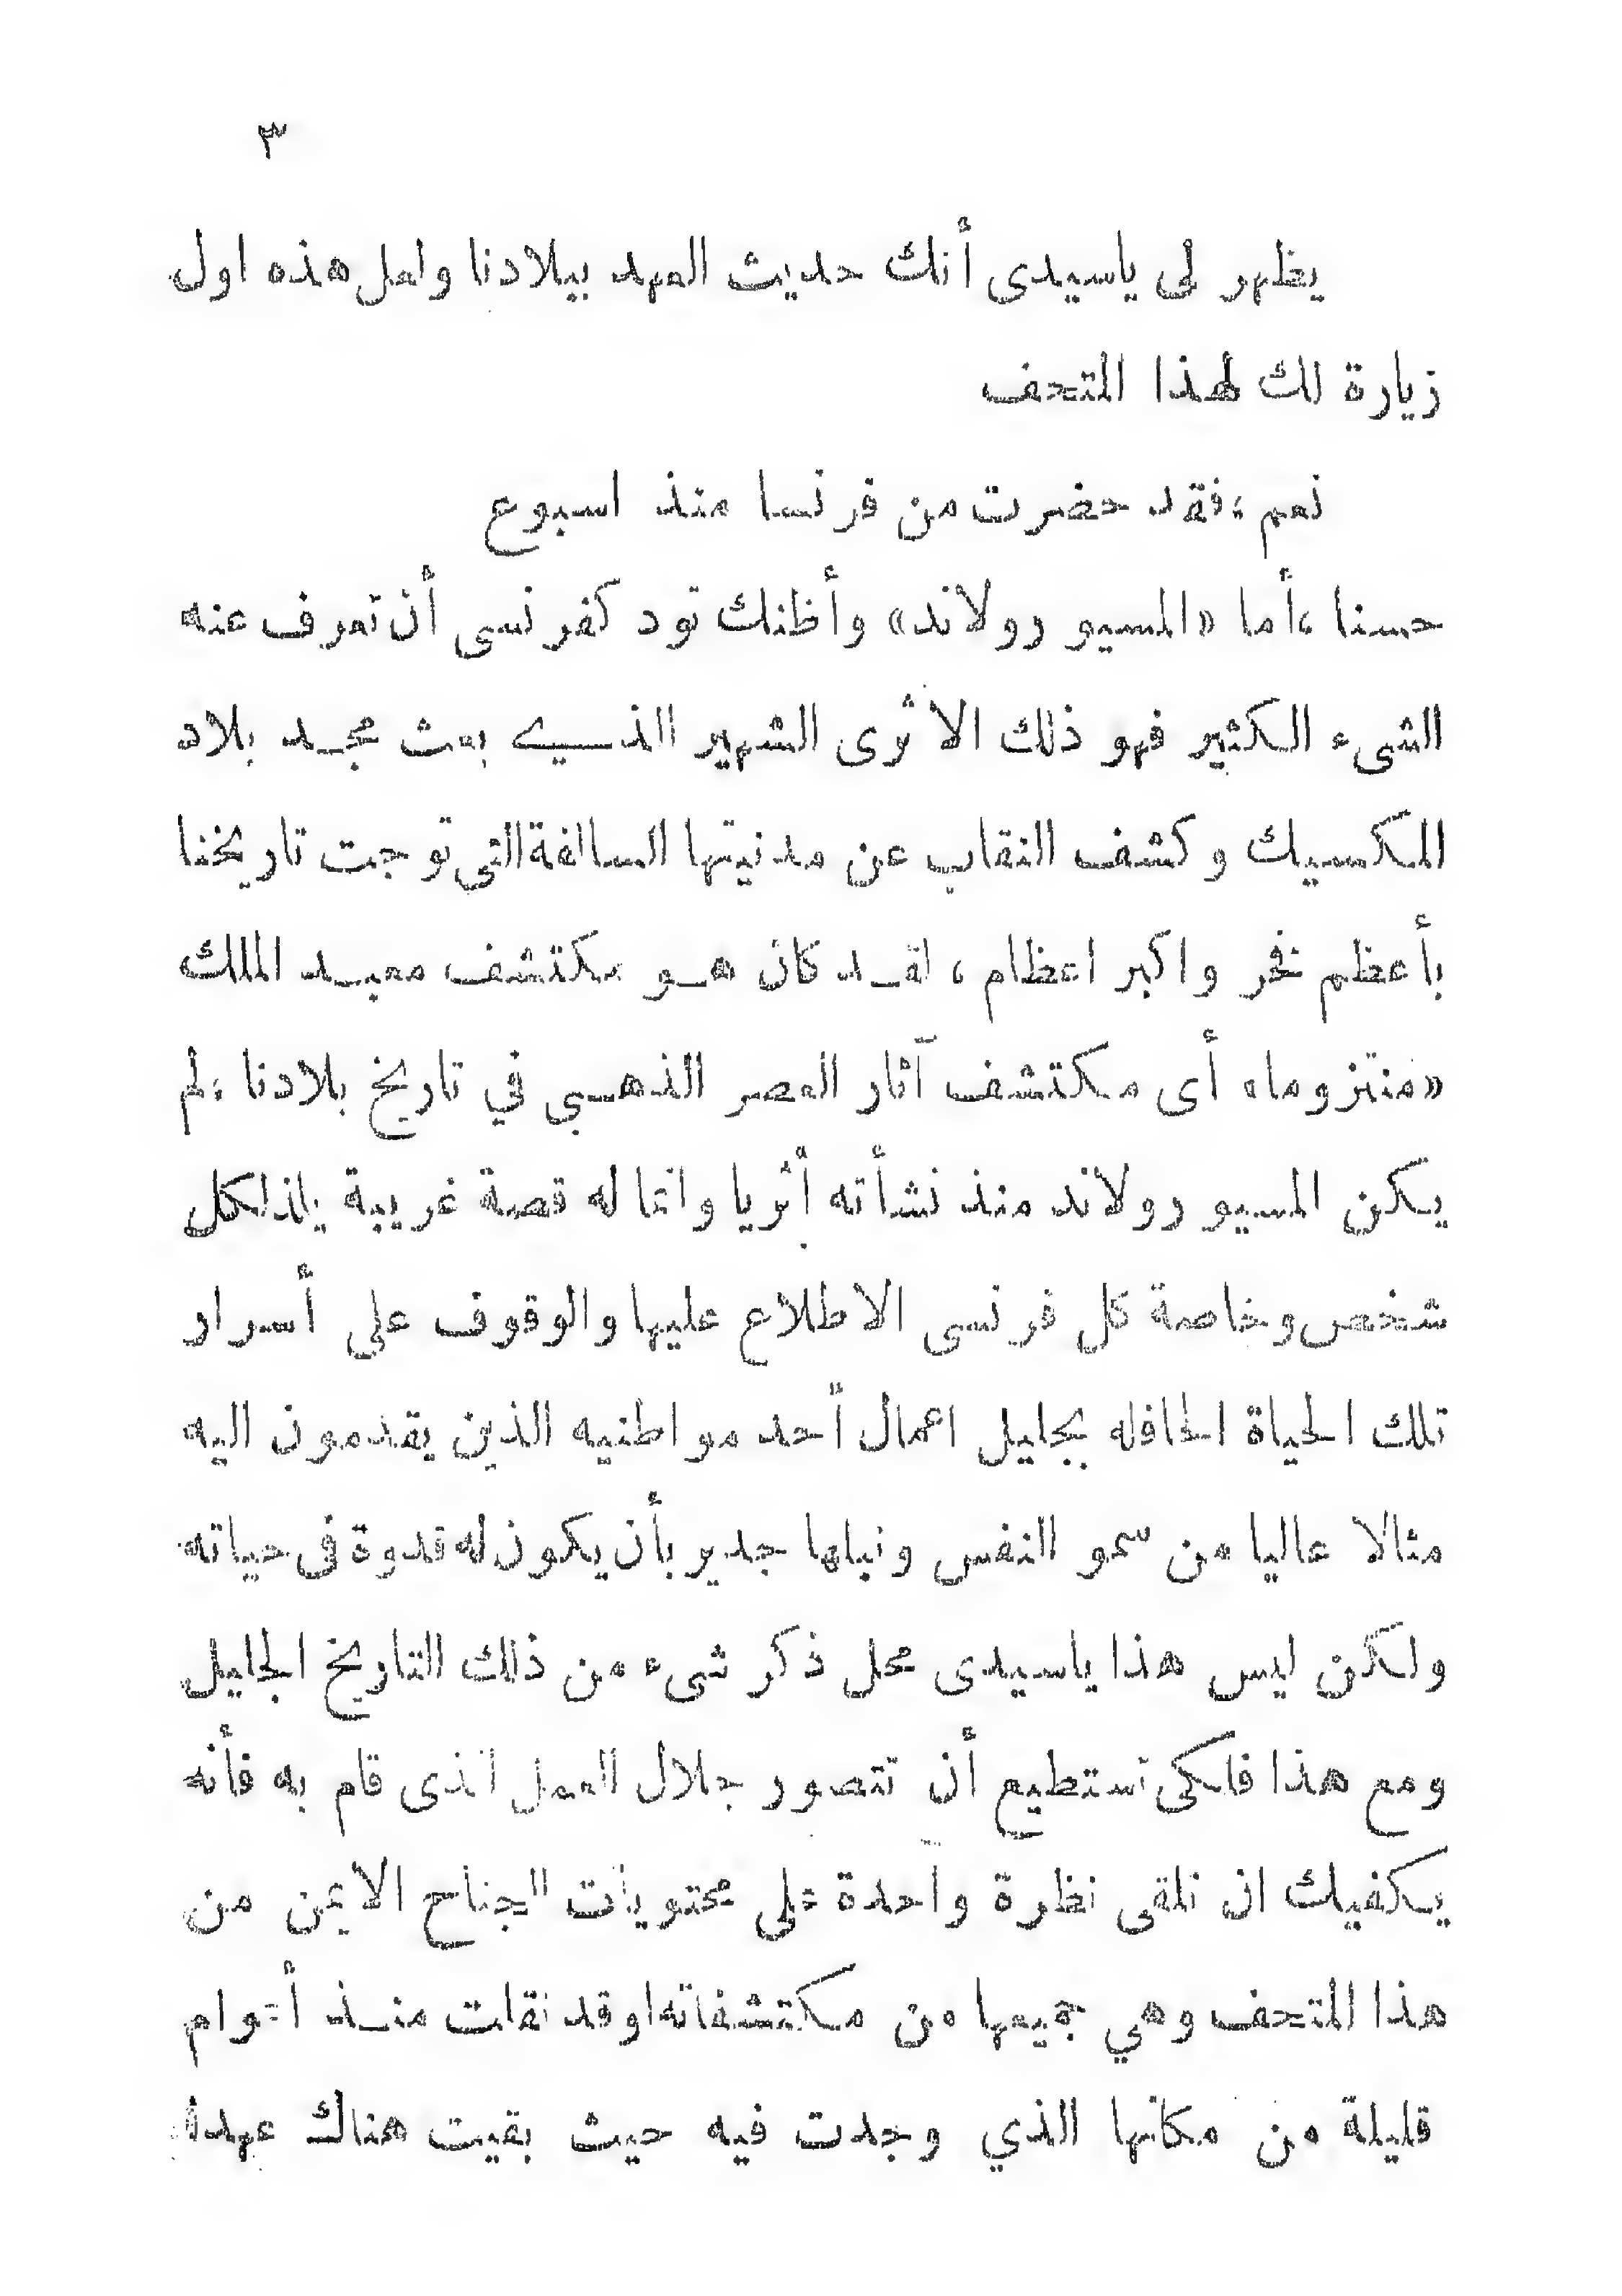 ٣
يظهر لى ياسيدى أنك حديث العهد ببلادنا ولعل هذه اول
زيارة لك لهذا المتحف
نعم ،فقد حضرت من فرنسا منذ اسبوع
حسنا ،أما «المسيو رولاند» وأظنك تود كفرنسى أن تعرف عنه
الشىء الكثير فهو ذلك الأثرى الشهير الذي بعث مجد بلاد
المكسيك وكشف النقاب عن مدنيتها السالفة التى توجت تاريخنا
بأعظم فخر واكبر اعظام ، لقد كان هو مكتشف معبد الملك
«منتزوما» أى مكتشف آثار العصر الذهبي في تاريخ بلادنا ،لم
يكن المسيو رولاند منذ نشأته أثريا وانما له قصة غريبة يلذ لكل
شخص وخاصة كل فرنسى الاطلاع عليها والوقوف على أسرار
تلك الحياة الحافله بجليل اعمال أحد مواطنيه الذين يقدمون اليه
مثالا عاليا من سمو النفس ونبلها جدير بأن يكون له قدوة فى حياته
ولكن ليس هذا ياسيدى محل ذكر شىء من ذلك التاريخ الجليل
ومع هذا فلكى تستطيع أن تتصور جلال العمل الذى قام به فأنه
يكفيك ان تلقى نظرة واحدة على محتويات الجناح الايمن من
هذا المتحف وهي جميعها من مكتشفاته وقد نقلت منذ أعوام
قليلة من مكانها الذي وجدت فيه حيث بقيت هناك عهدا